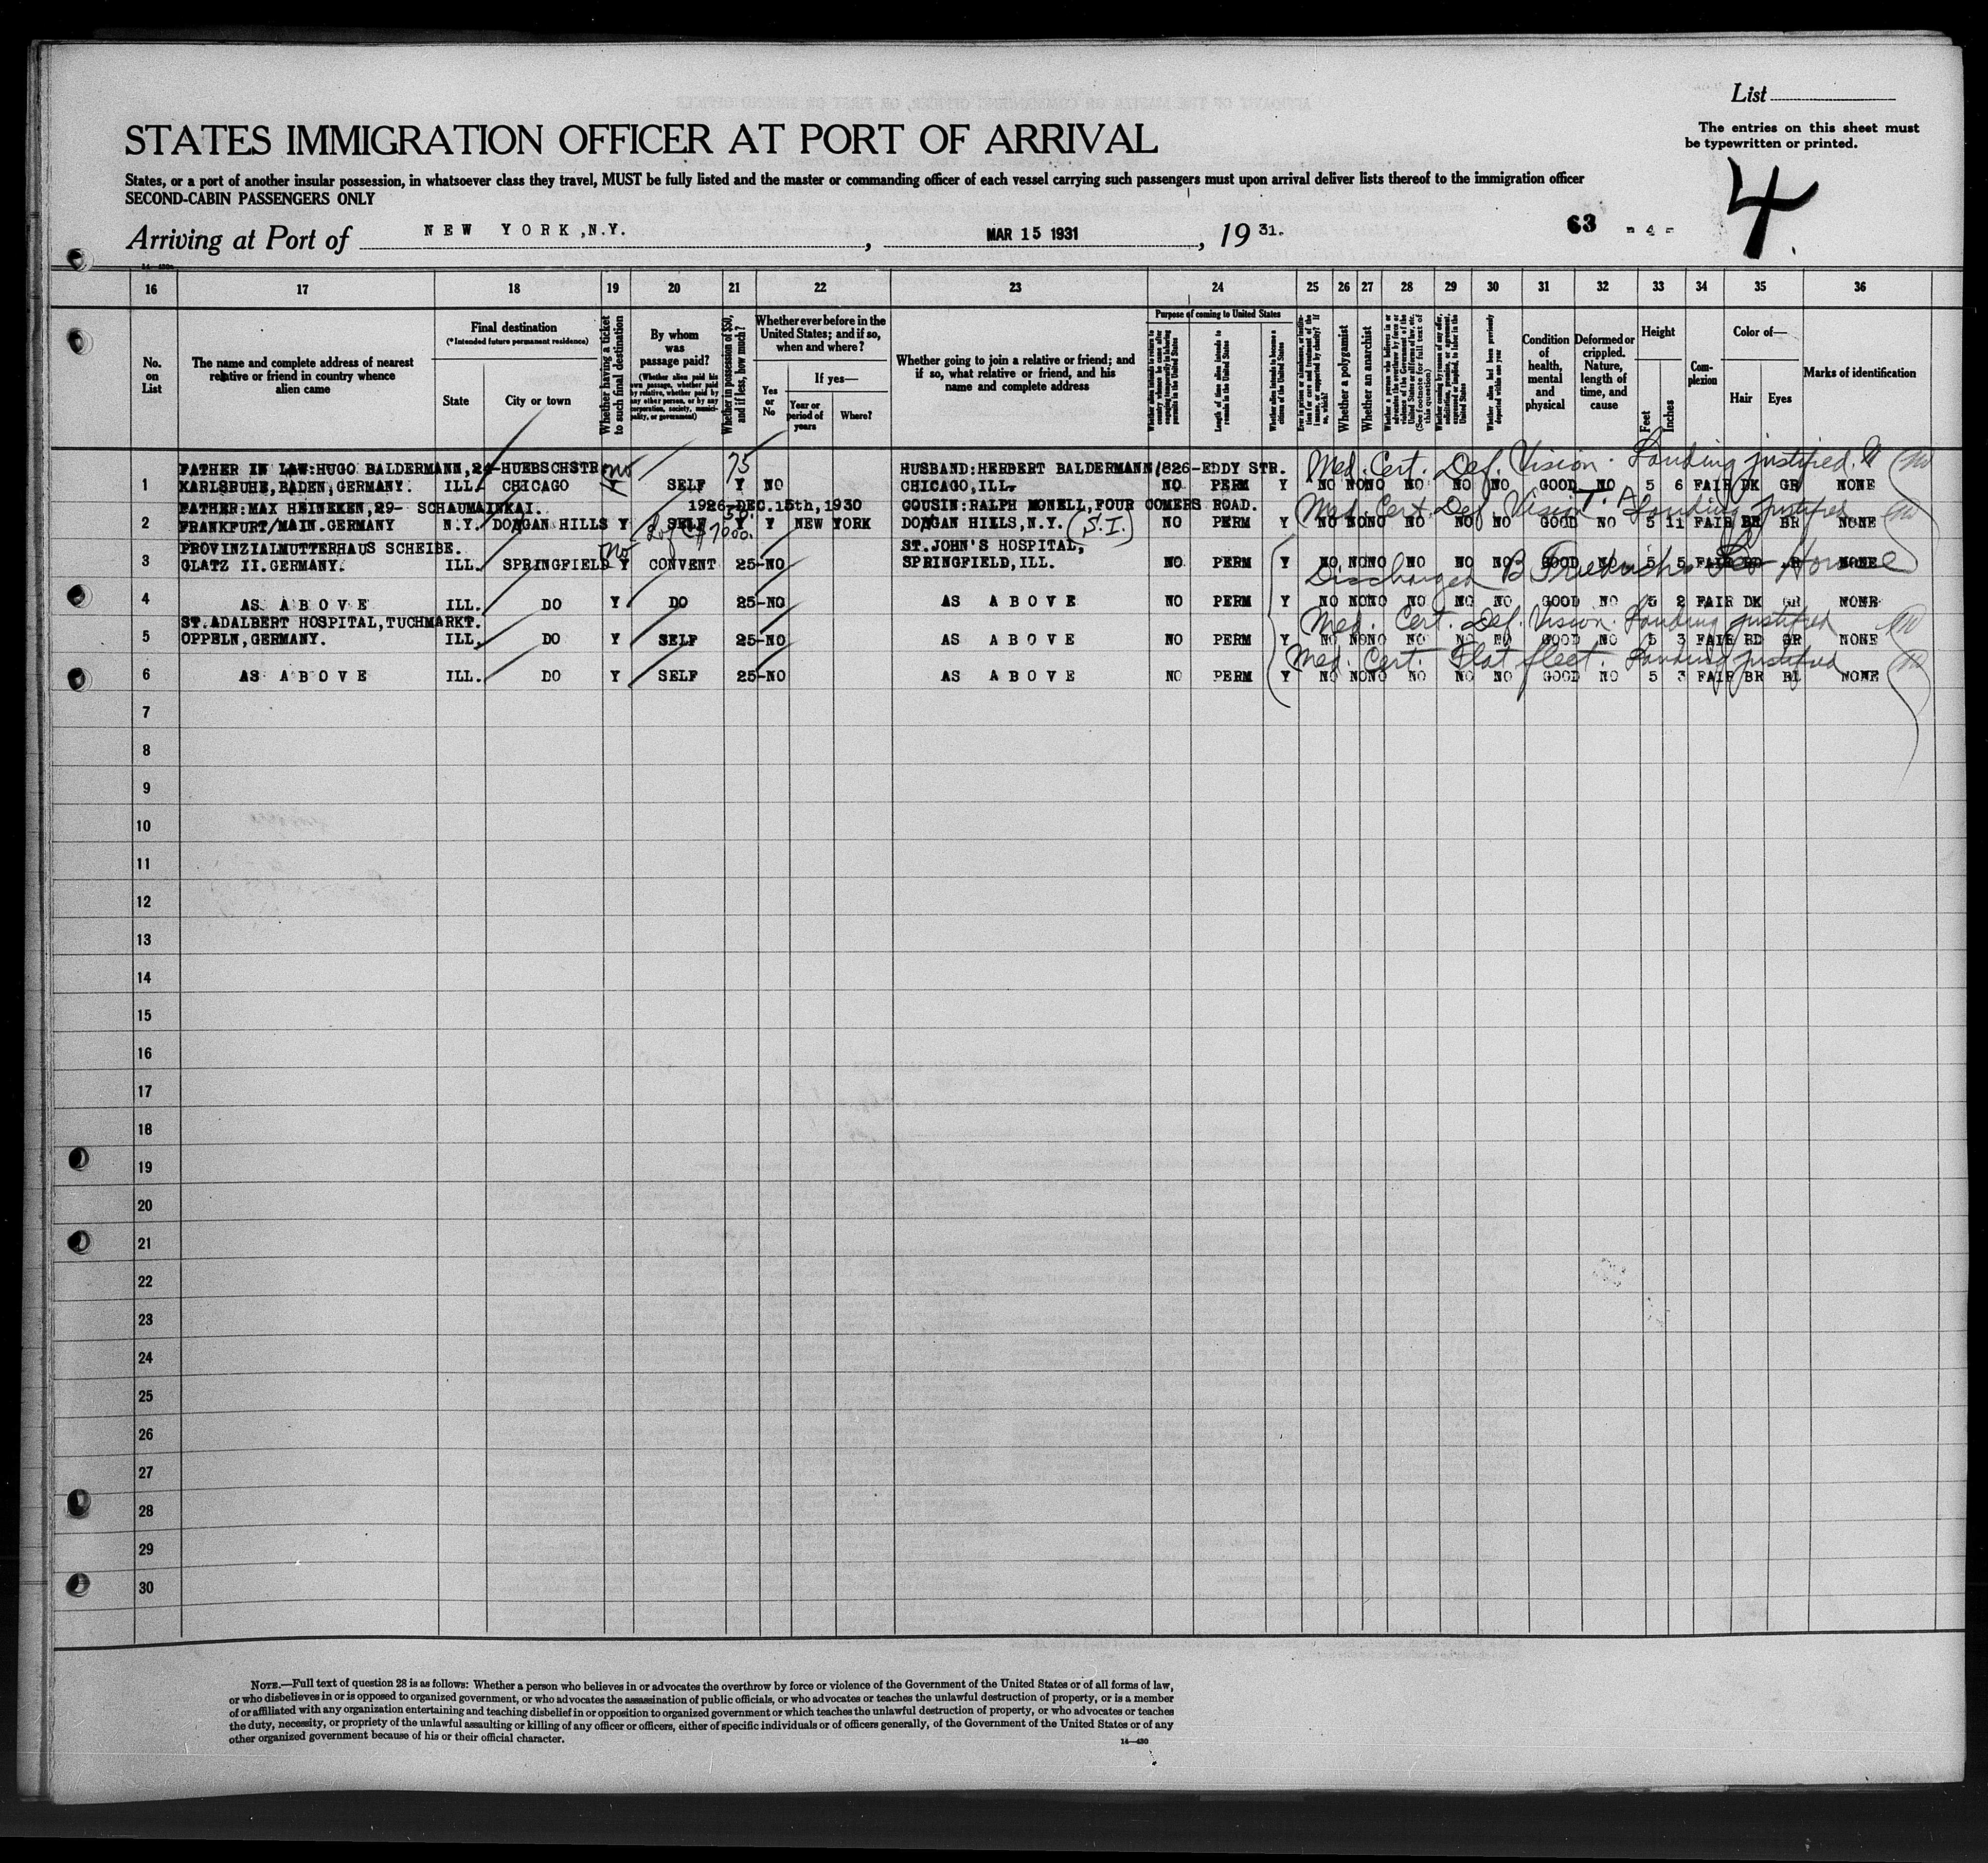 List
The entries on this sheet must
be typewritten or printed.
STATES IMMIGRATION OFFICER AT PORT OF ARRIVAL
4
States, or a port of another insular possession, in whatsoever class they travel, MUST be fully listed and the master or commanding officer of each vessel carrying such passengers must upon arrival deliver lists thereof to the immigration officer
SECOND-CABIN PASSENGERS ONLY
Arriving at Port of NEW YORK,N.Y. , MAR 15 1931 , 19 31. 63 - 4 -
16 17 18 19 20 21 22 23 24 25 26 27 28 29 30 31 32 33 34 35 36
No. on List
The name and complete address of nearest relative or friend in country whence alien came
Final destination
(*Intended future permanent residence)
State
City or town
Whether having a ticket to such final destination
By whom was passage paid?
(Whether alien paid his own passage, whether paid by relative, whether paid by any other person, or by any corporation, society, municipality, or government)
Whether in possession of $50, and if less, how much?
Whether ever before in the United States; and if so, when and where?
Yes or No
If yes—
Year or period of years
Where?
Whether going to join a relative or friend; and if so, what relative or friend, and his name and complete address
Purpose of coming to United States
Whether alien intends to return to country whence he came after engaging temporarily in laboring pursuits in the United States
Length of time alien intends to remain in the United States
Whether alien intends to become a citizen of the United States
Whether a polygamist
Whether an anarchist
Whether alien had been previously deported within one year
Condition of health, mental and physical
Deformed or crippled. Nature, length of time, and cause
Height
Feet
Inches
Complexion
Color of—
Hair
Eyes
Marks of identification
FATHER IN LAW:HUGO BALDERMANN,24-HUEBSCHSTR no 75 HUSBAND:HERBERT BALDERMANN,1826-EDDY STR. Med. Cert. Def. Vision. Landing justified.
1 KARLSRUHE,BADEN,GERMANY. ILL. CHICAGO Y SELF Y NO CHICAGO,ILL. NO PERM Y NO NO NO NO NO NO GOOD NO 5 6 FAIR DK GR NONE
FATHER:MAX HEINEKEN,29- SCHAUMAINKAI. 1926-DEC.15th,1930 COUSIN:RALPH MONELL,FOUR COMERS ROAD. Med. Cert. Def. Vision Landing justified
2 FRANKFURT/MAIN.GERMANY N.Y. DONGAN HILLS Y SELF Y Y NEW YORK DONGAN HILLS,N.Y. (S.I.) NO PERM Y NO NO NO NO NO NO GOOD NO 5 11 FAIR BR BR NONE
PROVINZIALMUTTERHAUS SCHEIBE. no ST.JOHN'S HOSPITAL,
3 GLATZ II.GERMANY. ILL. SPRINGFIELD Y CONVENT 25-NO SPRINGFIELD,ILL. NO PERM Y NO NO NO NO NO NO GOOD NO 5 5 FAIR NONE
Discharged Home
4 AS ABOVE ILL. DO Y DO 25-NO AS ABOVE NO PERM Y NO NO NO NO NO NO GOOD NO 5 2 FAIR DK GR NONE
ST.ADALBERT HOSPITAL,TUCHMARKT. Med. Cert. Def. Vision. Landing justified
5 OPPELN,GERMANY. ILL. DO Y SELF 25-NO AS ABOVE NO PERM Y NO NO NO NO NO NO GOOD NO 5 3 FAIR BD GR NONE
Med. Cert. Flat feet. Landing justified
6 AS ABOVE ILL. DO Y SELF 25-NO AS ABOVE NO PERM Y NO NO NO NO NO NO GOOD NO 5 3 FAIR BR BL NONE
7
8
9
10
11
12
13
14
15
16
17
18
19
20
21
22
23
24
25
26
27
28
29
30
NOTE.—Full text of question 28 is as follows: Whether a person who believes in or advocates the overthrow by force or violence of the Government of the United States or of all forms of law,
or who disbelieves in or is opposed to organized government, or who advocates the assassination of public officials, or who advocates or teaches the unlawful destruction of property, or is a member
of or affiliated with any organization entertaining and teaching disbelief in or opposition to organized government or which teaches the unlawful destruction of property, or who advocates or teaches
the duty, necessity, or propriety of the unlawful assaulting or killing of any officer or officers, either of specific individuals or of officers generally, of the Government of the United States or of any
other organized government because of his or their official character.
14—430